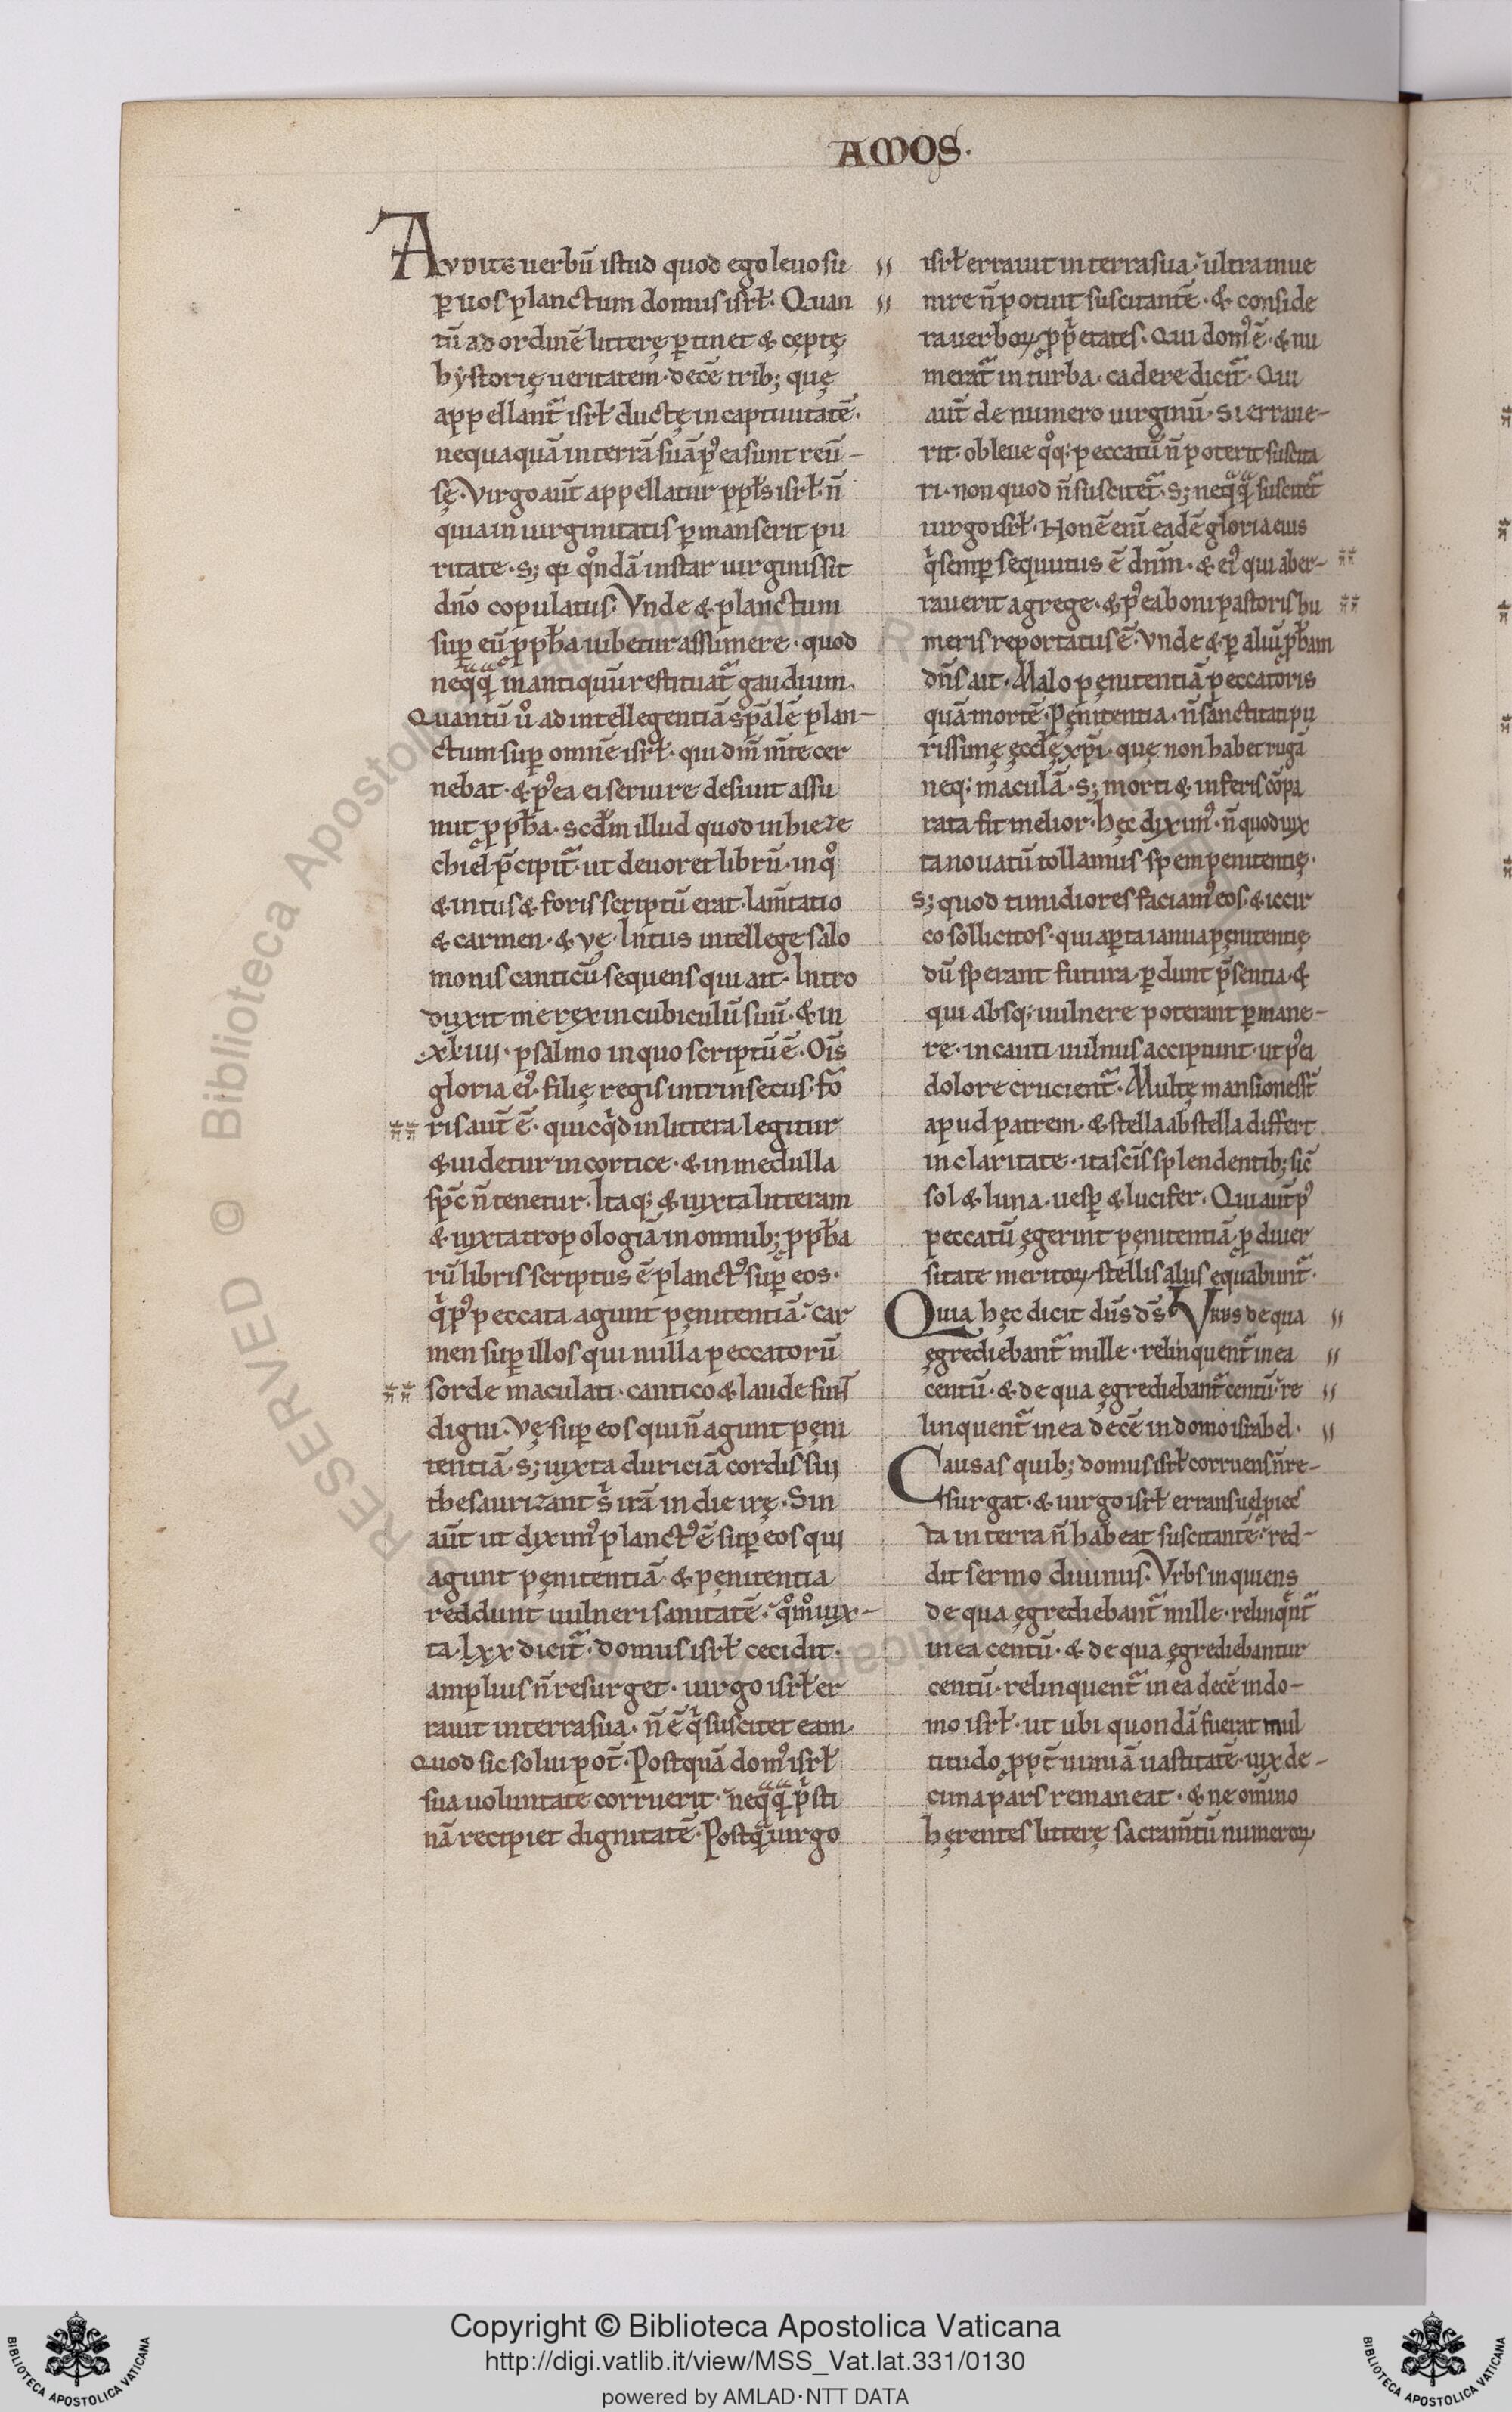 AMOS.
Audite uerbū istud quod ego leuo su
ꝑ uos planctum domus isrł. Quan
tū ad ordinē litterę ꝑtinet & cęptę
hẏstorię ueritatem. decē trib; quę
appellant᷑ isrł ductę in captiuitatē.
nequaquā in terrā suā pꝰea sunt reū-
sę. Virgo aūt appellatur ppłs isrł. n̄
quia in uirginitatis ꝑmanserit pu
ritate. s; qͥ qͦndā instar uirginis sit
dn̄o copulatus. Vnde & planctum
suꝑ eū ꝓpħa iubetur assumere. quod
neqͣqͣ in antiquū restituat᷑ gaudium.
Quantū uͦ ad intellegentiā sp̄alē plan-
ctum suꝑ omnē isrł. qui dm̄ m̄te cer
nebat. & pꝰea ei seruire desiuit assu
mit ꝓpħa. scd̄m illud quod in hieze
chiel p̄cipit᷑. ut deuoret librū. in qͦ
& intus & foris scriptū erat. lam̄tatio
& carmen. & vę. Intus intellege salo
monis canticū sequens qui ait. Intro
duxit me rex in cubiculū suū. & in
.xliiij. psalmo in quo scriptū ē. Oīs
gloria eiꝰ filię regis intrinsecus. fo
ris aūt ē. quicqͥd in littera legitur
& uidetur in cortice. & in medulla
sp̄c n̄ tenetur. Itaq; & iuxta litteram
& iuxta tropologiā in omnib; ꝓpħa
rū libris scriptus ē planctꝰ suꝑ eos.
qͥ pꝰ peccata agunt pęnitentiā. car
men suꝑ illos qui nulla peccatorū
sorde maculati. cantico & laude sunt
digni. Vę suꝑ eos qui n̄ agunt pęni
tentiā. s; iuxta duriciā cordis sui
thesaurizant sͥ irā in die irę. Sin
aūt ut diximꝰ planctꝰ ē suꝑ eos qui
agunt pęnitentiā. & pęnitentia
reddunt uulneri sanitatē. qͦmͦ iux-
ta. lxx dicit᷑. domus isrł cecidit.
amplius n̄ resurget. uirgo isrł er
rauit in terra sua. n̄ ē qͥ suscitet eam.
Quod sic solui pot̄. Postquā domꝰ isrł
sua uoluntate corruerit. neqͣqͣ pͥsti
nā recipiet dignitatē. Postqͣ uirgo
isrł errauit in terra sua. ultra inue
nire n̄ potuit suscitantē. & conside
ra uerboꝝ ꝓpͥetates. Qui domꝰ ē. & nu
merat᷑ in turba. cadere dicit᷑. Qui
aūt de numero uirginū. si erraue-
rit. ob leue qͦq; peccatū n̄ poterit suscita
ri. non quod n̄ suscitet᷑. s; neqͣqͣ suscitet᷑
uirgo isrł. Non ē enī eadē gloria eius
qͥ semꝑ sequutus ē dn̄m. & eiꝰ qui aber-
rauerit a grege. & pꝰea boni pastoris hu
meris reportatus ē. Vnde & ꝑ aliū ꝓpħam
dn̄s ait. Malo pęnitentiā peccatoris
quā mortē. Pęnitentia. n̄ sanctitati pu
rissimę ęccłę xp̄i. quę non habet rugā
neq; maculā. s; morti & inferis cōpa
rata fit melior. hęc diximꝰ. n̄ quod iux
ta nouatū tollamus spem penitentię.
s; quod timidiores faciamꝰ eos. & iccir
co sollicitos. qui aꝑta ianua pęnitentię
dū sperant futura. ꝑdunt p̄sentia. &
qui absq; uulnere poterant ꝑmane-
re. incauti uulnus accipiunt. ut pꝰea
dolore crucient᷑. Multę mansiones st̄
apud patrem. & stella ab stella differt
in claritate. ita sc̄is splendentib; sic̄
sol & luna. uesꝑ & lucifer. Qui aūt pꝰ
peccatū ęgerint pęnitentiā. ꝓ diuer
sitate meritoꝝ stellis aliis equabunt᷑.
Quia hęc dicit dn̄s ds̄. Vrbs de qua
ęgrediebant᷑ mille. relinquent᷑ in ea
centū. & de qua ęgrediebant᷑ centū. re
linquent᷑ in ea decē in domo israhel.
Causas quib; domus isrł corruens n̄ re-
surgat. & uirgo isrł errans uel piec
ta in terra n̄ habeat suscitantē. red-
dit sermo diuinus. Vrbs inquiens
de qua ęgrediebant᷑ mille. relinqͥnt᷑
in ea centū. & de qua ęgrediebantur
centū. relinquent᷑ in ea decē in do-
mo isrł. ut ubi quondā fuerat mul
titudo. ꝓpt̄ nimiā uastitatē. uix de-
cima pars remaneat. & ne omīno
hęrentes litterę sacram̄tū numeroꝝ
RESERVED © Biblioteca Apostolica Vaticana
Copyright © Biblioteca Apostolica Vaticana
http://digi.vatlib.it/view/MSS_Vat.lat.331/0130
powered by AMLAD·NTT DATA
BIBLIOTECA APOSTOLICA VATICANA
BIBLIOTECA APOSTOLICA VATICANA